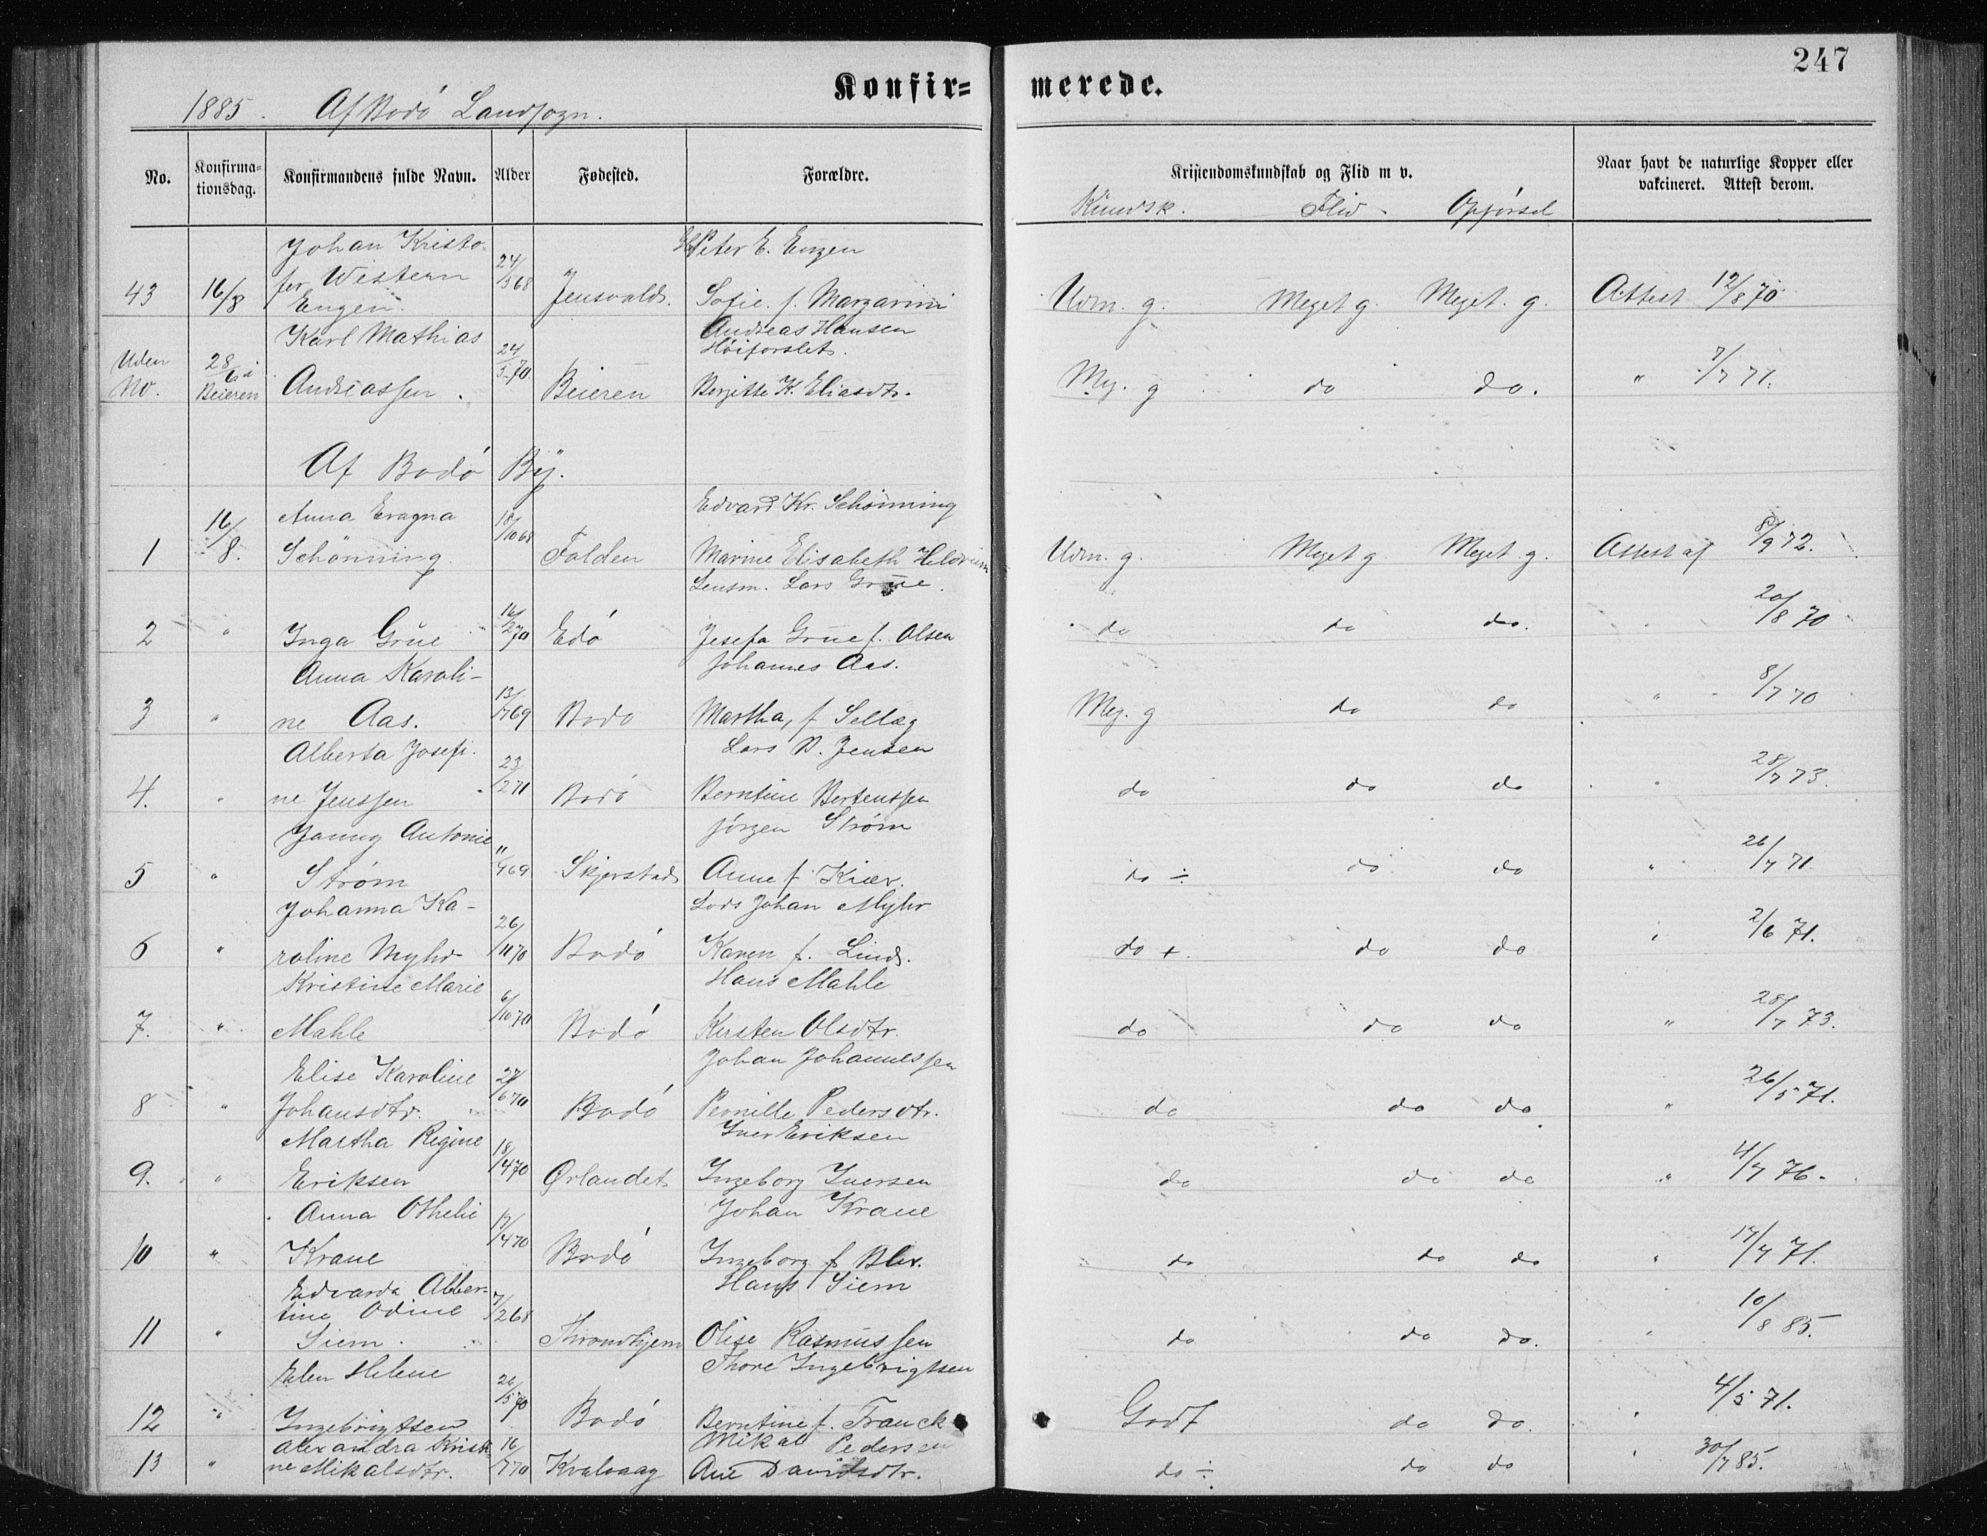 247
Konfir= merede.
1885. Af Bodø Landsogn.
No. Konfirma=tionsdag. Konfirmandens fulde Navn. Alder Fødested. Forældre. Kristendomskundskab og Flid m v. Naar havt de naturlige Kopper eller vakcineret. Attest derom.
Kundsk. Flid. Opførsel
Johan Kristo- Peter E. Engen
fer Western 24/5 68
43 16/8 Engen. Jensvold. Sofie f. Margarini Udm. g. Meget g. Meget. g. Attest 12/8 70
Karl Mathias Andreas Hansen
Høiforslet.
Uden No. 28/6 i Beieren Andreassen. 24/5 70 Beieren Bergitte K. Eliasdtr. Mg. g do do. " 7/7 71.
Af Bodø By.
Anna Eragna Edvard Kr. Schønning
1 16/8. Schønning 18/10 68 Folden Marine Elisabeth Heldrum Udm. g. Meget g Meget g. Attest af 8/9 72.
Lensm. Lars Grüe.
2 " Inga Grüe 16/2 70 Edø Jesefa Grue f. Olsen do do do. 20/8 70
Anna Karoli- Johannes Aas.
3 " ne Aas. 13/7 69 Bodø Martha, f Sellæg Meg. g do do " 8/7 70
Alberta Josefi- Lars D. Jensen
4. " ne Jenssen 23/2 71 Bodø Berntine Bertenssen do do do 28/7 73.
Janny Antonie Jørgen Strøm
5 " Strøm 11/9 69 Skjerstad Anne f Kiær. do ÷ do do " 26/7 71.
Johanna Ka- Lods Johan Myhr
6 " roline Myhr 26/11 70 Bodø Karen f. Lind. do + do do " 2/6 71.
Kristine Marie Hans Mahle
7. " Mahle 6/10 70 Bodø Kirsten Olsdtr. do do do " 28/7 73.
Elise Karoline Johan Johannessen
8 " Johansdtr. 27/6 70 Bodø Pernille Pedersdtr. do do do " 26/5 71.
Martha Regine Iver Eriksen
9. " Eriksen 18/4 70 Ørlandet Ingeborg Iversen do do do " 4/7 76.
Anna Othelie Johan Krane
10 " Krane 17/4 70 Bodø Ingeborg f Blix. do do do " 17/7 71.
Edvarda Alber- Hans Siem
tine Odine 7/2 68
11 " Siem. Throndhjem Olise Rasmussen do do do. 10/8 85.
Elen Helene Thore Ingebrigtsen
12 " Ingebrigtsen 26/5 70 Bodø Berntine f. Franck Godt do do. 4/5 71.
Alexandra Kristi- Mikal Pedersen
13 " ne Mikalsdtr. 16/7 70 Kvalvaag Ane Davidsdtr. do ÷ do do 30/7 85.